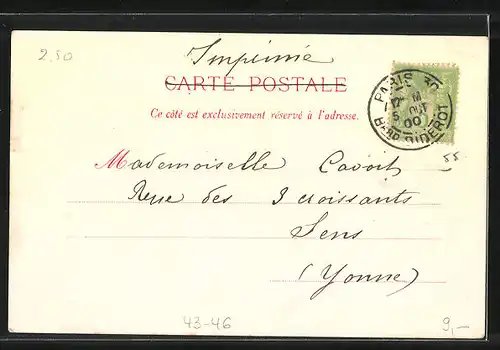 2.50
Imprimé
CARTE POSTALE
Ce côté est exclusivement réservé à l'adresse.
PARIS
17
5 OUT 00
Bard DIDEROT
55
Mademoiselle Cavoit
Rue des 3 croissants
Sens
(Yonne)
43-46
9,-